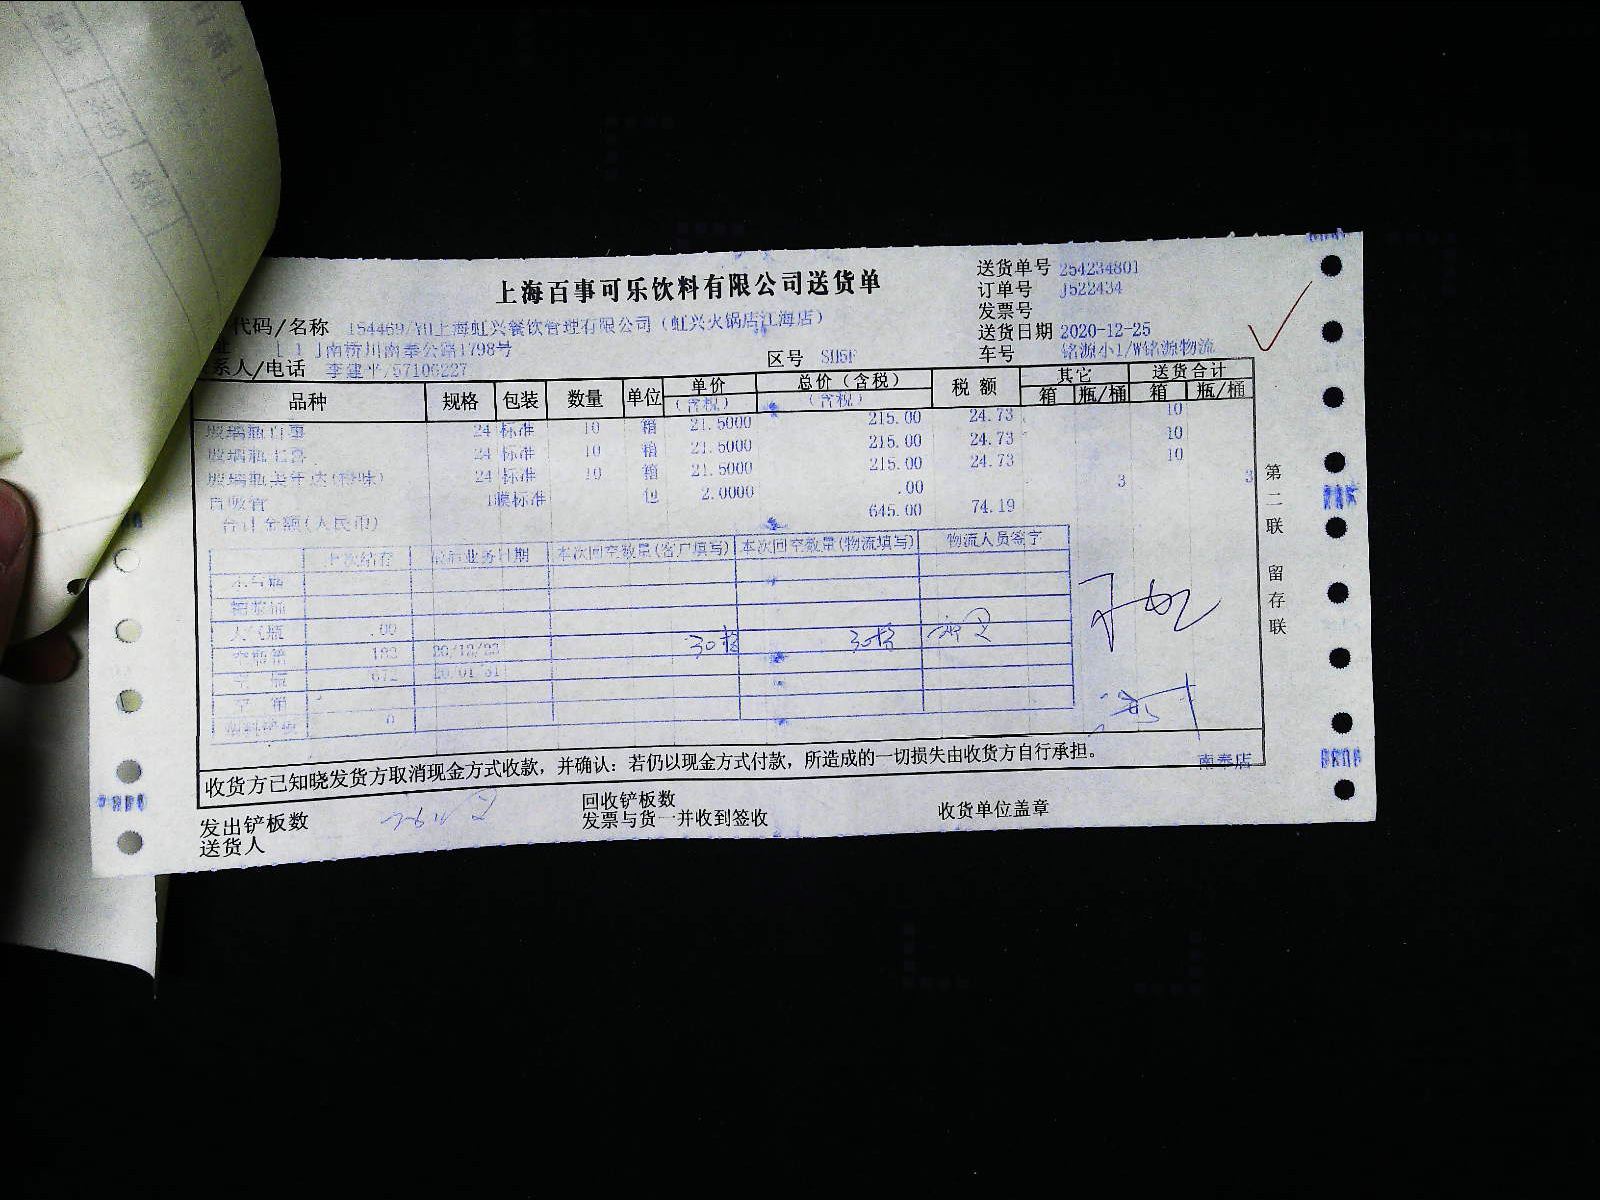 上海百事可乐饮料有限公司送货单
送货单号 254234801
订单号 J522434
发票号
送货日期 2020-12-25
车号 铭源小1/W铭源物流
代码/名称 154469/YH上海虹兴餐饮管理有限公司(虹兴火锅店江海店)
南奉公路1798号
系人/电话 李建平/57106227
区号 SH5F
品种 规格 包装 数量 单位 单价(含税) 总价(含税)(含税) 税额 其它 箱 瓶/桶 送货合计 箱 瓶/桶
玻璃瓶百事 24 标准 10 箱 21.5000 215.00 24.73 10
玻璃瓶七喜 24 标准 10 箱 21.5000 215.00 24.73 10
玻璃瓶美年达(橙味) 24 标准 10 箱 21.5000 215.00 24.73 10
百吸管 1膜标准 包 2.0000 .00 3 3
合计金额(人民币) 645.00 74.19
上次结存 最后业务日期 本次回空数量(客户填写) 本次回空数量(物流填写) 物流人员签字
.00
空瓶箱 20/12/23 30 30
空瓶 672
空箱
0
第二联 留存联
收货方已知晓发货方取消现金方式收款，并确认：若仍以现金方式付款，所造成的一切损失由收货方自行承担。
南奉店
发出铲板数
回收铲板数
收货单位盖章
送货人
发票与货一并收到签收